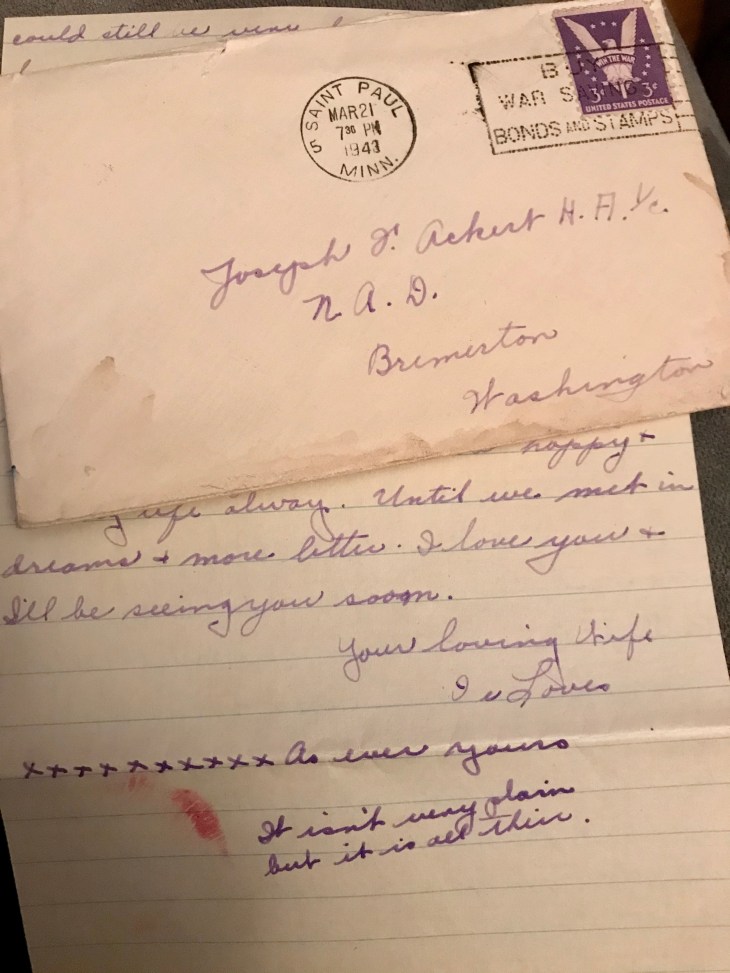 could still
SAINT PAUL
MAR 21
7 30 PM
1943
MINN.
5
BUY
WAR SAVINGS
BONDS AND STAMPS
WIN THE WAR
3¢ 3¢
UNITED STATES POSTAGE
Joseph F. Ackert H.A. 1/c.
N.A.D.
Bremerton
Washington
happy +
life alway. Until we met in
dreams + more letter. I love you +
I'll be seeing you soon.
Your loving Wife
Loves
xxxxxxxxxx As ever yours
It isn't very plain
but it is all their.